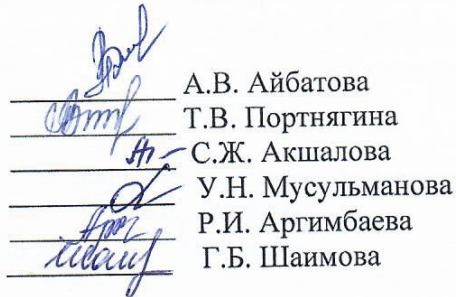 А.В. Айбатова
Т.В. Портнягина
С.Ж. Акшалова
У.Н. Мусульманова
Р.И. Аргимбаева
Г.Б. Шаимова